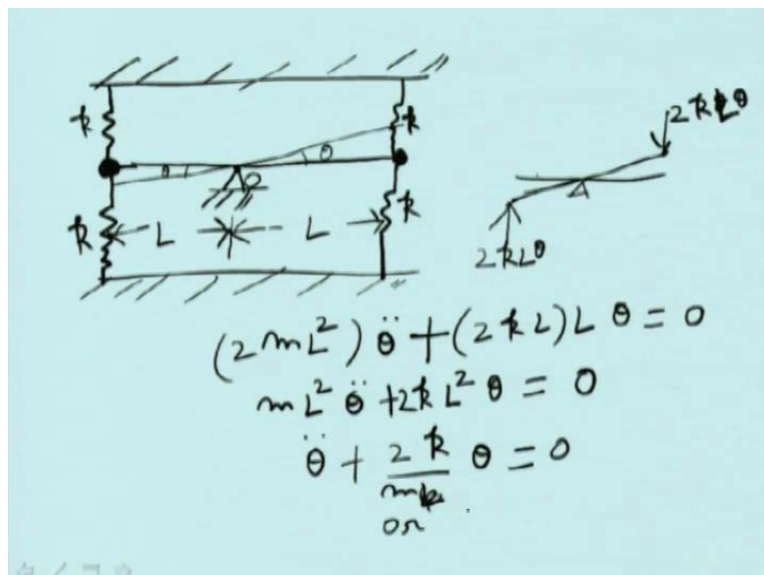 k k
θ θ
O
k L L k
2kLθ
2kLθ
(2mL²)θ̈ + (2kL)L θ = 0
mL² θ̈ + 2kL² θ = 0
θ̈ + 2k/m θ = 0
or